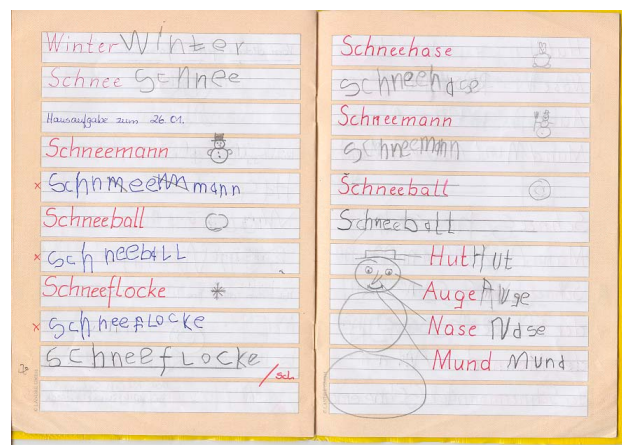 Winter Winter
Schnee Schnee
Hausaufgabe zum 26.01.
Schneemann
x Schnmeemmann
Schneeball
x Schneeball
Schneeflocke
x SchneefLOCKe
SchneefLOCKe
/sch
Schneehase
Schneehase
Schneemann
Schneemann
Schneeball
Schneeball
Hut Hut
Auge AUge
Nase Nase
Mund Mund